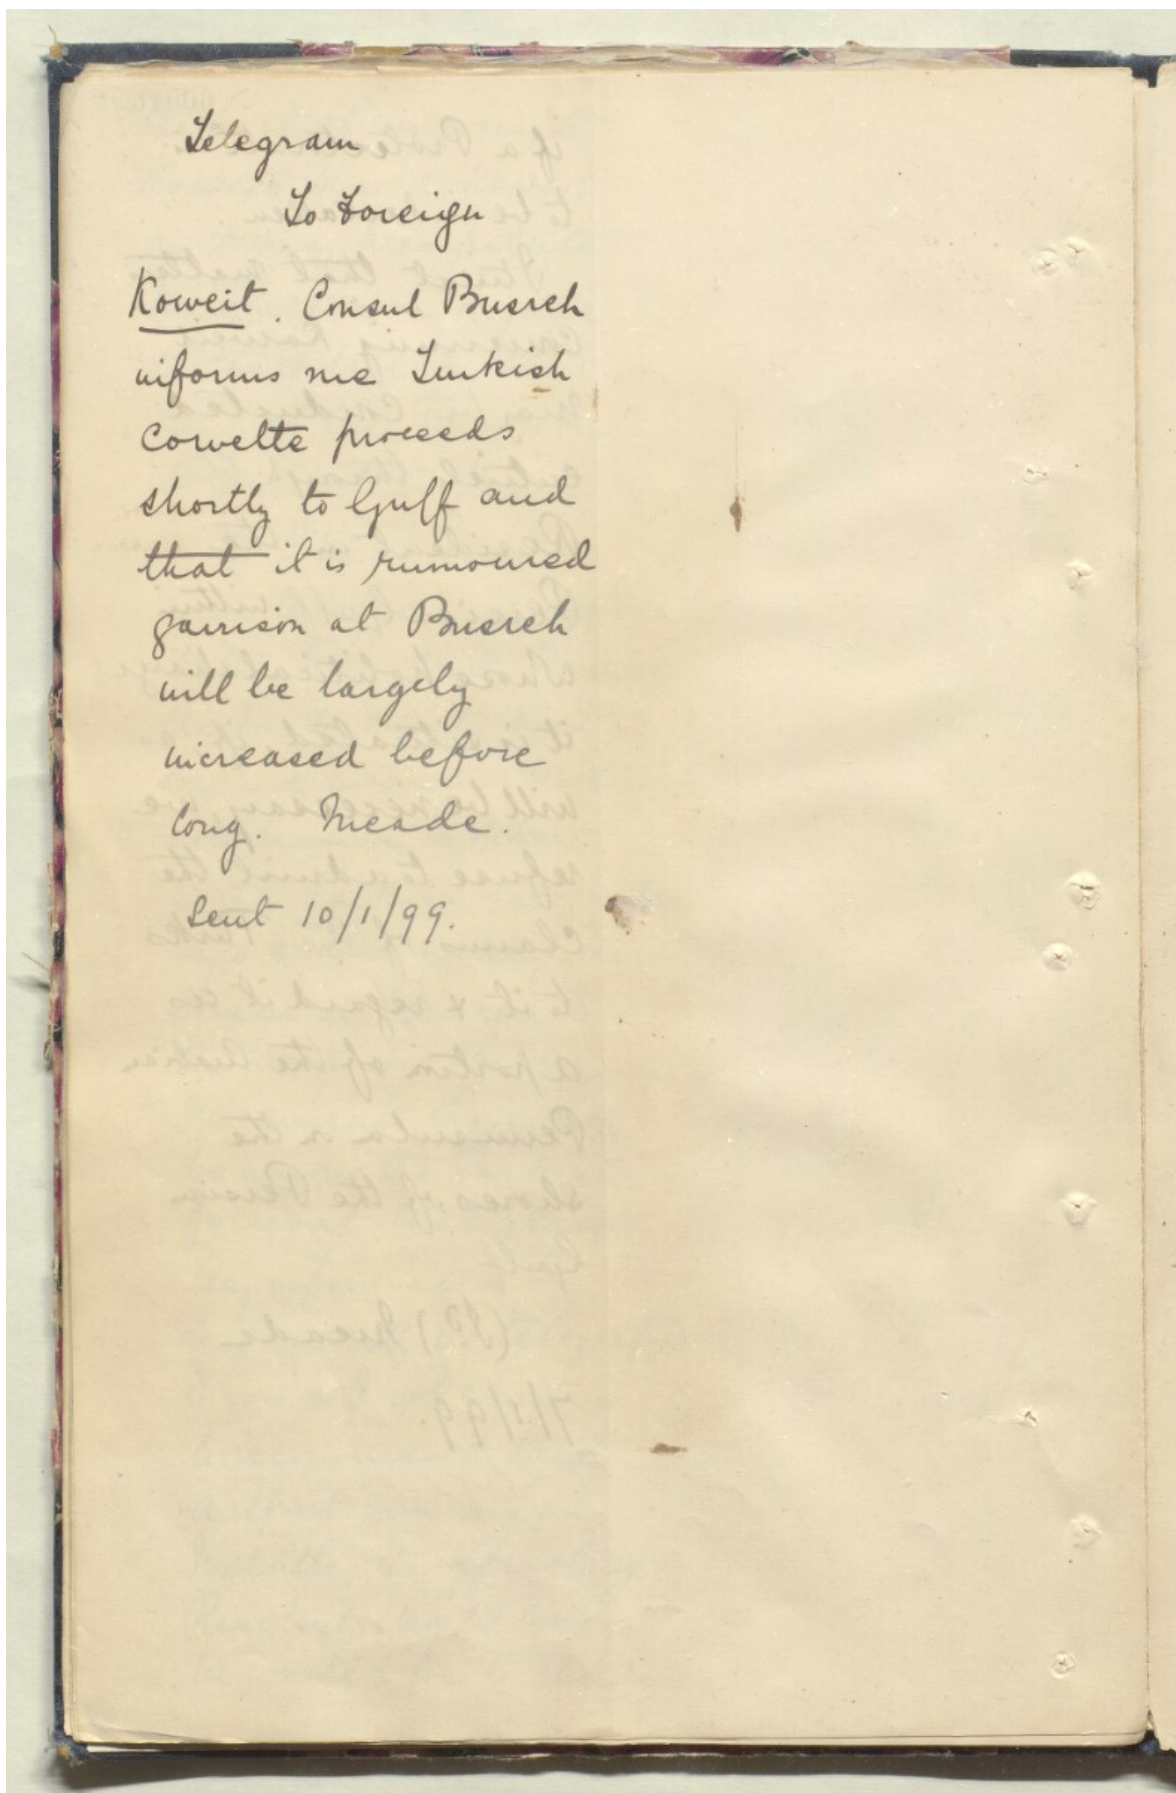 Telegram
To Foreign
Koweit. Consul Busreh
informs me Turkish
Corvette proceeds
shortly to Gulf and
that it is rumoured
garrison at Busreh
will be largely
increased before
long. Meade.
Sent 10/1/99.